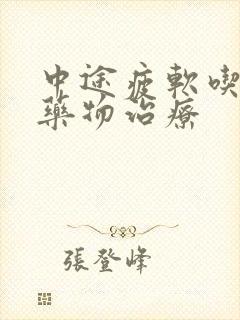 中途疲軟喫
藥物治療
張登峰